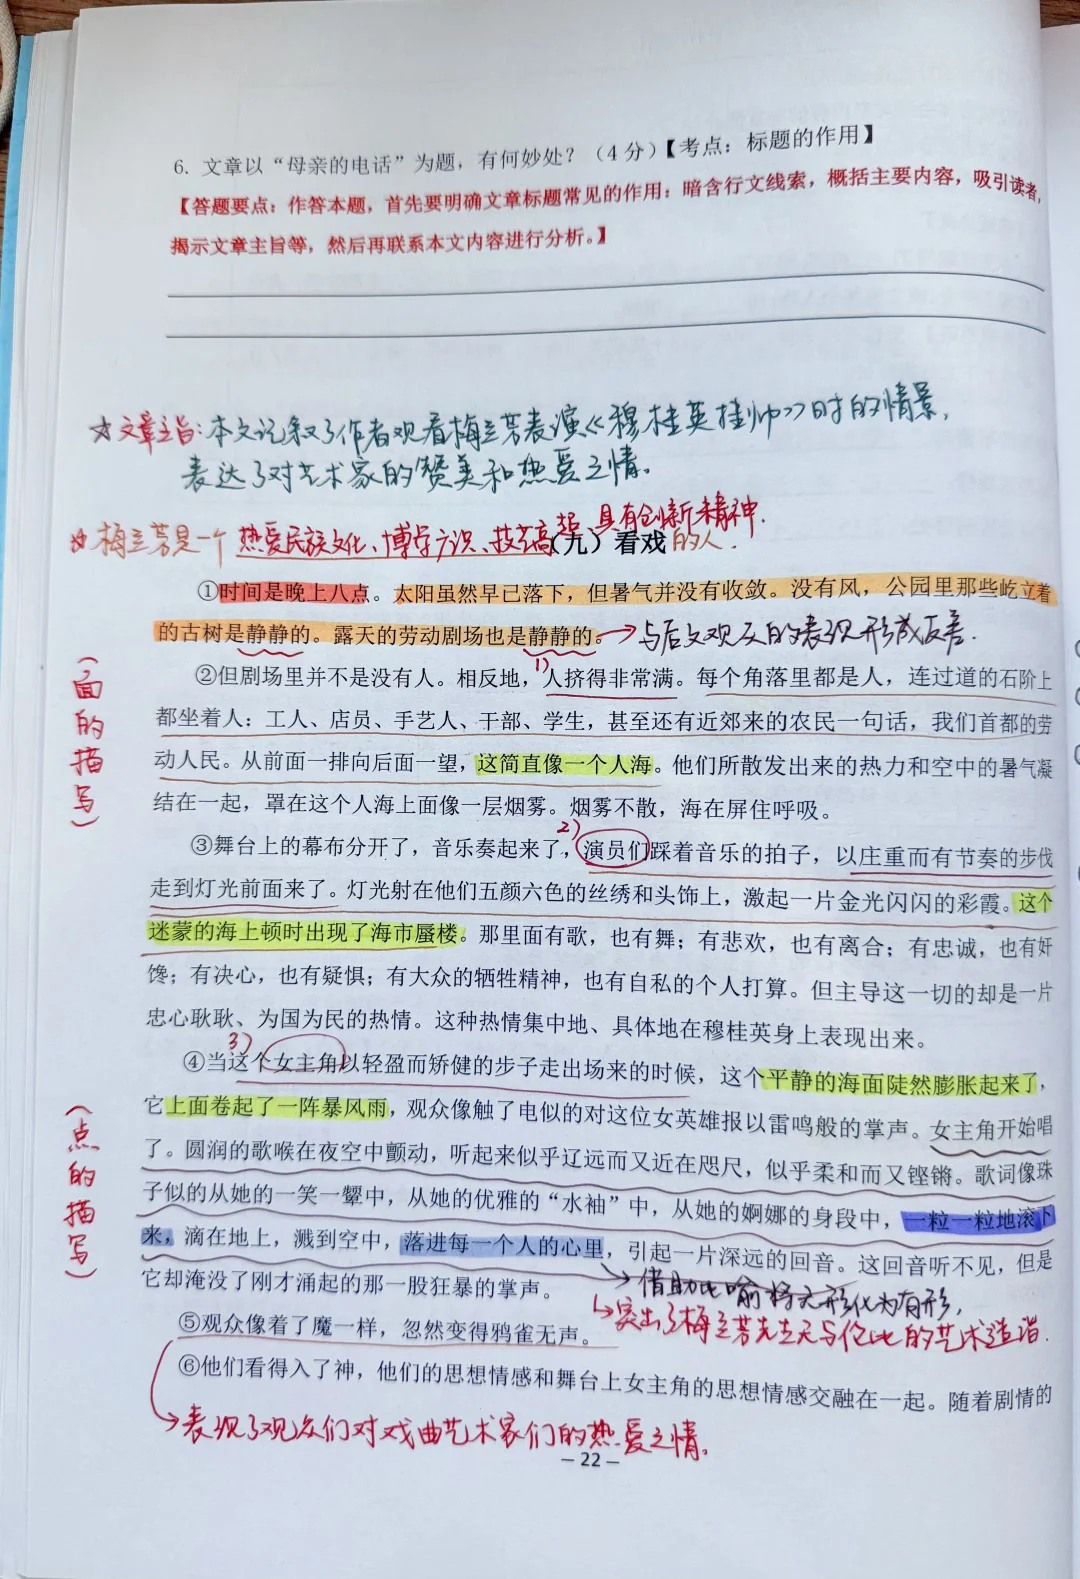 6. 文章以“母亲的电话”为题，有何妙处？（4 分）【考点：标题的作用】
【答题要点：作答本题，首先要明确文章标题常见的作用：暗含行文线索，概括主要内容，吸引读者，
揭示文章主旨等，然后再联系本文内容进行分析。】
☆文章主旨：本文记叙了作者观看梅兰芳表演《穆桂英挂帅》时的情景，
表达了对艺术家的赞美和热爱之情。
☆梅兰芳是一个热爱民族文化、博学广识、技艺高强、具有创新精神的人.
（九）看戏
①时间是晚上八点。太阳虽然早已落下，但暑气并没有收敛。没有风，公园里那些屹立着
的古树是静静的。露天的劳动剧场也是静静的。
→与后文观众的表现形成反差.
（面的描写）
②但剧场里并不是没有人。相反地，1）人挤得非常满。每个角落里都是人，连过道的石阶上
都坐着人：工人、店员、手艺人、干部、学生，甚至还有近郊来的农民一句话，我们首都的劳
动人民。从前面一排向后面一望，这简直像一个人海。他们所散发出来的热力和空中的暑气凝
结在一起，罩在这个人海上面像一层烟雾。烟雾不散，海在屏住呼吸。
③舞台上的幕布分开了，音乐奏起来了，2）演员们踩着音乐的拍子，以庄重而有节奏的步伐
走到灯光前面来了。灯光射在他们五颜六色的丝绣和头饰上，激起一片金光闪闪的彩霞。这个
迷蒙的海上顿时出现了海市蜃楼。那里面有歌，也有舞；有悲欢，也有离合；有忠诚，也有奸
馋；有决心，也有疑惧；有大众的牺牲精神，也有自私的个人打算。但主导这一切的却是一片
忠心耿耿、为国为民的热情。这种热情集中地、具体地在穆桂英身上表现出来。
（点的描写）
④当3）这个女主角以轻盈而矫健的步子走出场来的时候，这个平静的海面陡然膨胀起来了，
它上面卷起了一阵暴风雨，观众像触了电似的对这位女英雄报以雷鸣般的掌声。女主角开始唱
了。圆润的歌喉在夜空中颤动，听起来似乎辽远而又近在咫尺，似乎柔和而又铿锵。歌词像珠
子似的从她的一笑一颦中，从她的优雅的“水袖”中，从她的婀娜的身段中，一粒一粒地滚下
来，滴在地上，溅到空中，落进每一个人的心里，引起一片深远的回音。这回音听不见，但是
它却淹没了刚才涌起的那一股狂暴的掌声。
→借助比喻将无形化为有形，
→突出了梅兰芳先生无与伦比的艺术造诣.
⑤观众像着了魔一样，忽然变得鸦雀无声。
⑥他们看得入了神，他们的思想情感和舞台上女主角的思想情感交融在一起。随着剧情的
→表现了观众们对戏曲艺术家们的热爱之情。
— 22 —